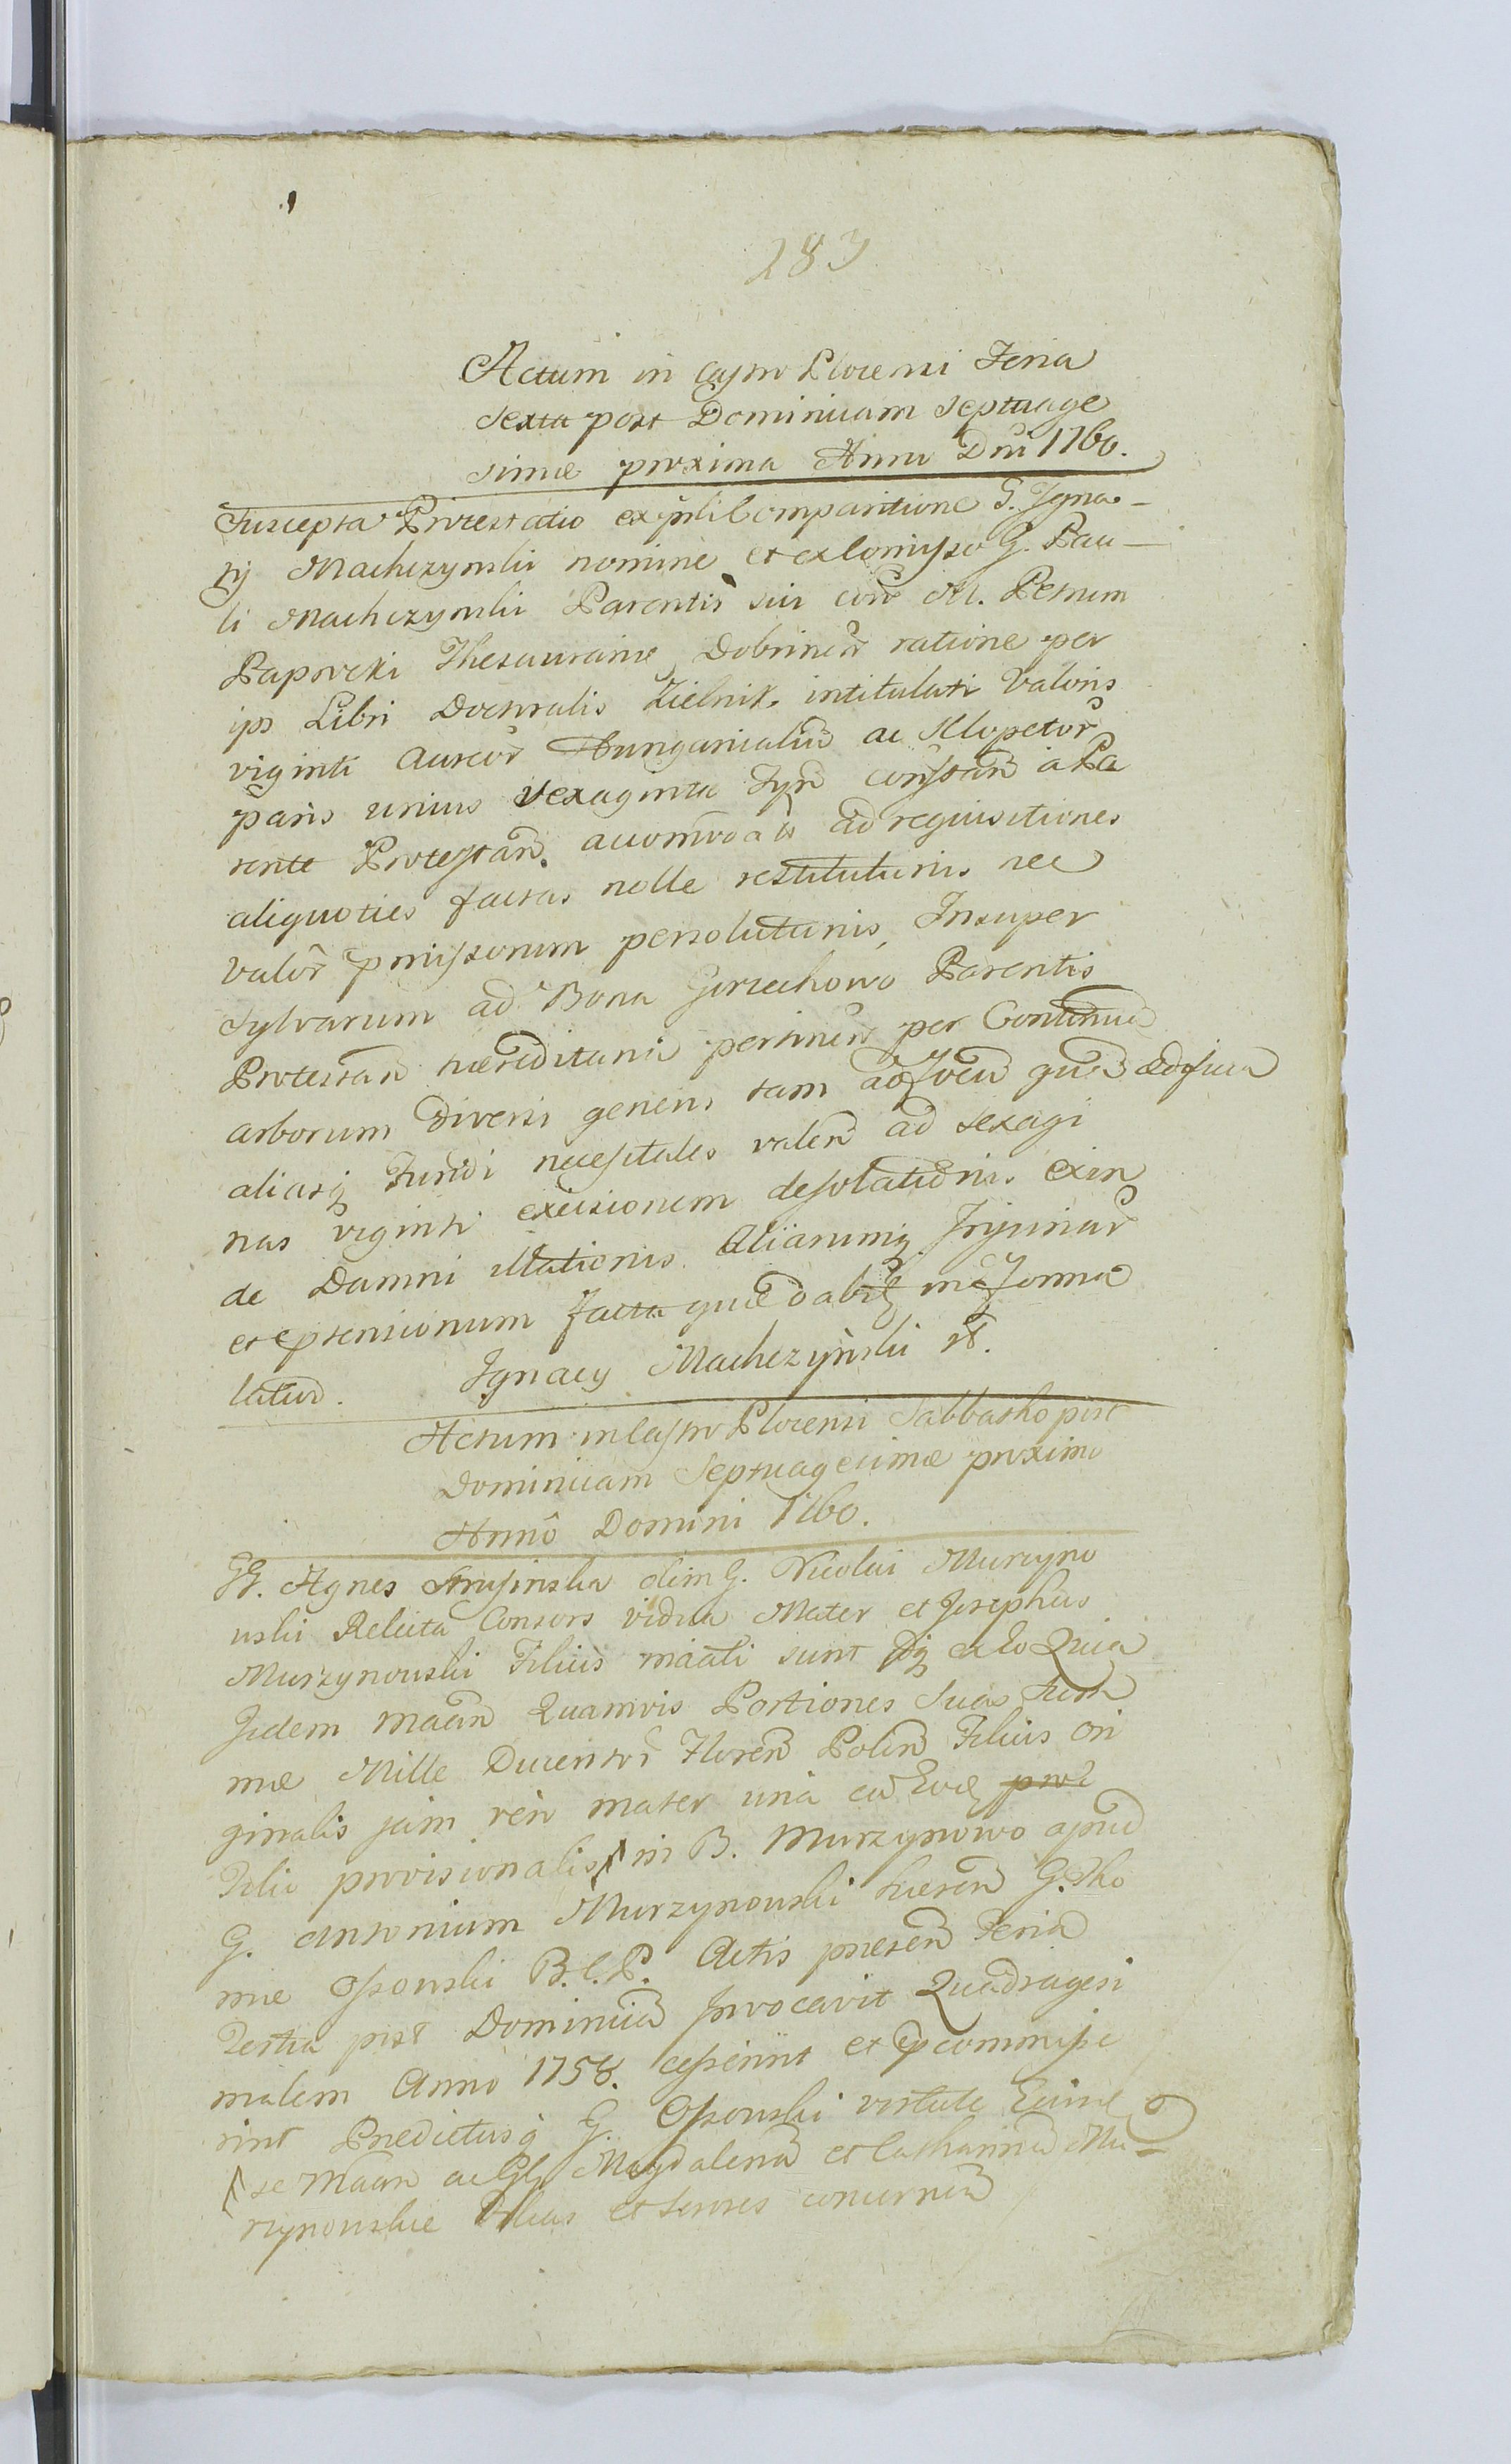 283
Actum in Castro Plocensi Feria
Sexta post Dominicam Septuage
simae proxima Anno Dni 1760.
Suscepta Protestatio ex psli Comparitione G. Igna-
tij Machczynski nomine et ex Comisso G. Pau-
li Machczynski Parentis sui con M. Petrum
Paprocki Thesaurariae Dobrinen ratione per
ips Libri Doctoralis Zielnik intitulati Valoris
viginti Aureor Hungaricaliu ac Sklopetor
paris unius sexaginta Tyn constan a Pa
rente Protestan. accomodatis ad requisitiones
aliquoties factas nolle restitutionis nec
valor pmissorum persolutionis, Insuper
Sylvarum ad Bona Gorzechowo Parentis
Protestan haereditaria pertinen per Continua
arborum diversi generis tam ad focu qua aedificia
aliasq Fundi necessitates valen ad sexagi
nas viginti excisionem desolationis exin
de Damni illationis Aliarumq Injuriar
et eptensionum facta quae dabit in forma
latiori. Ignacy Machczyński
Actum in Castro Plocensi Sabbatho post
Dominicam Septuagesimae proximo
Anno Domini 1760.
GG. Agnes olim G. Nicolai Murzyno
wski Relicta Consors vidua Mater et Josephus
Murzynowski Filius sunt eo Quia
Iidem Quamvis Portiones Suas Sum
mae Mille Ducentor Floren Polon Filius Ori
ginalis jam mater una cu
Filio provisionalis in B. Murzynowo apud
G. Antonium Murzynowski haeren G. Tho
mae Ossowski B.C.P. Actis praesen Feria
Tertia post Dominica Invocavit Quadragesi
malem Anno 1758. cesserint et commise
rint Praedictusq G. Ossowski virtute
se ac GG Magdalena et Catharina Mu-
rzynowskie Filias et Sorores concernen